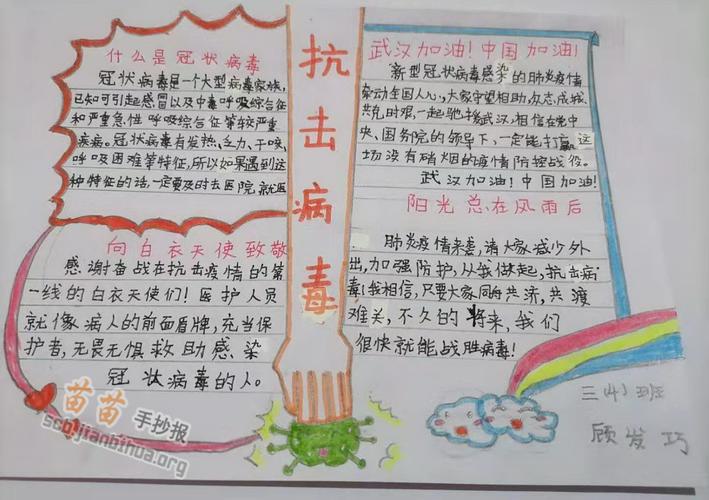 什么是冠状病毒
冠状病毒是一个大型病毒家族,
已知可引起感冒以及中毒呼吸综合征
和严重急性呼吸综合征等较严重
疾病。冠状病毒有发热、乏力、干咳,
呼吸困难等特征,所以如果遇到这
种特征的话,一定要及时去医院就医
向白衣天使致敬
感谢奋战在抗击疫情的第
一线的白衣天使们!医护人员
就像病人的前面盾牌,充当保
护者,无畏无惧救助感染
冠状病毒的人。
抗击病毒
武汉加油!中国加油!
新型冠状病毒感染的肺炎疫情
牵动全国人心,大家守望相助,众志成城
共克时艰,一起驰援武汉,相信在党中
央、国务院的领导下,一定能打赢这
场没有硝烟的疫情防控战役。
武汉加油!中国加油!
阳光总在风雨后
肺炎疫情来袭,请大家减少外
出,加强防护,从我做起,抗击病
毒!我相信,只要大家同舟共济,共渡
难关,不久的将来,我们
很快就能战胜病毒!
三(4)班
顾发巧
苗苗手抄报
scb.jianbihua.org